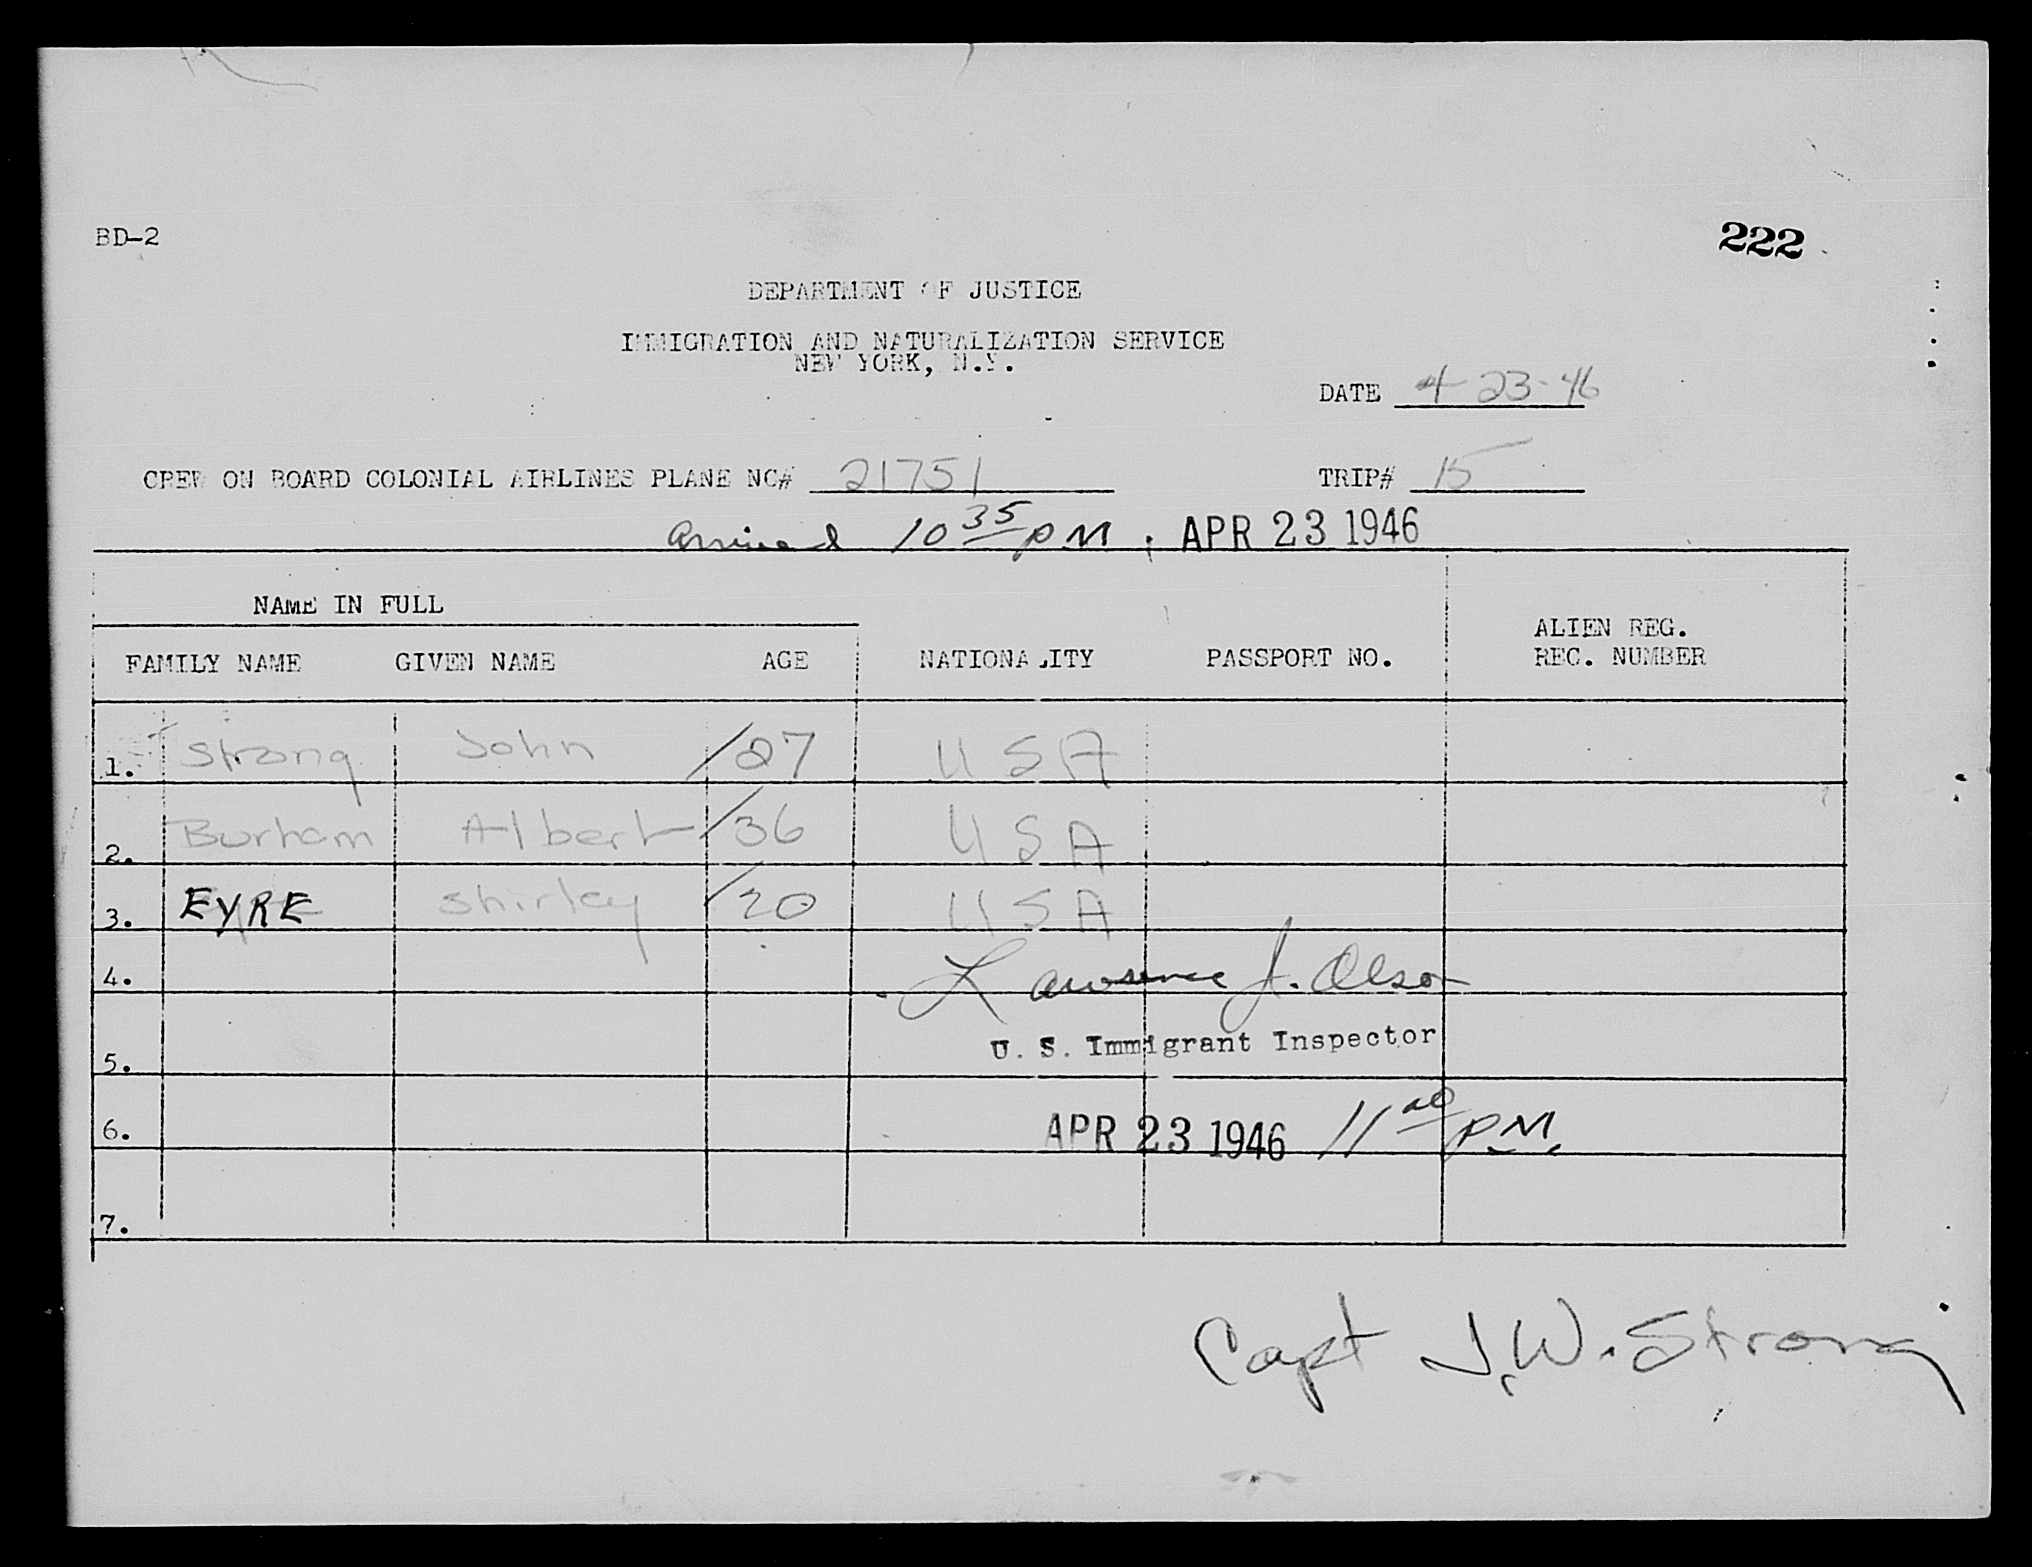 BD-2
222
DEPARTMENT OF JUSTICE
IMMIGRATION AND NATURALIZATION SERVICE
NEW YORK, N.Y.
DATE 4-23-46
CREW ON BOARD COLONIAL AIRLINES PLANE NC# 21751 TRIP# 15
Arrived 10 35 PM, APR 23 1946
NAME IN FULL
FAMILY NAME GIVEN NAME AGE NATIONALITY PASSPORT NO. ALIEN REG. REC. NUMBER
1. Strong John /27 USA
2. Burham Albert /36 USA
3. EYRE Shirley /20 USA
4. Lawrence J. Olson
U. S. Immigrant Inspector
5.
6. APR 23 1946 11 P.M.
7.
Capt J.W. Strong